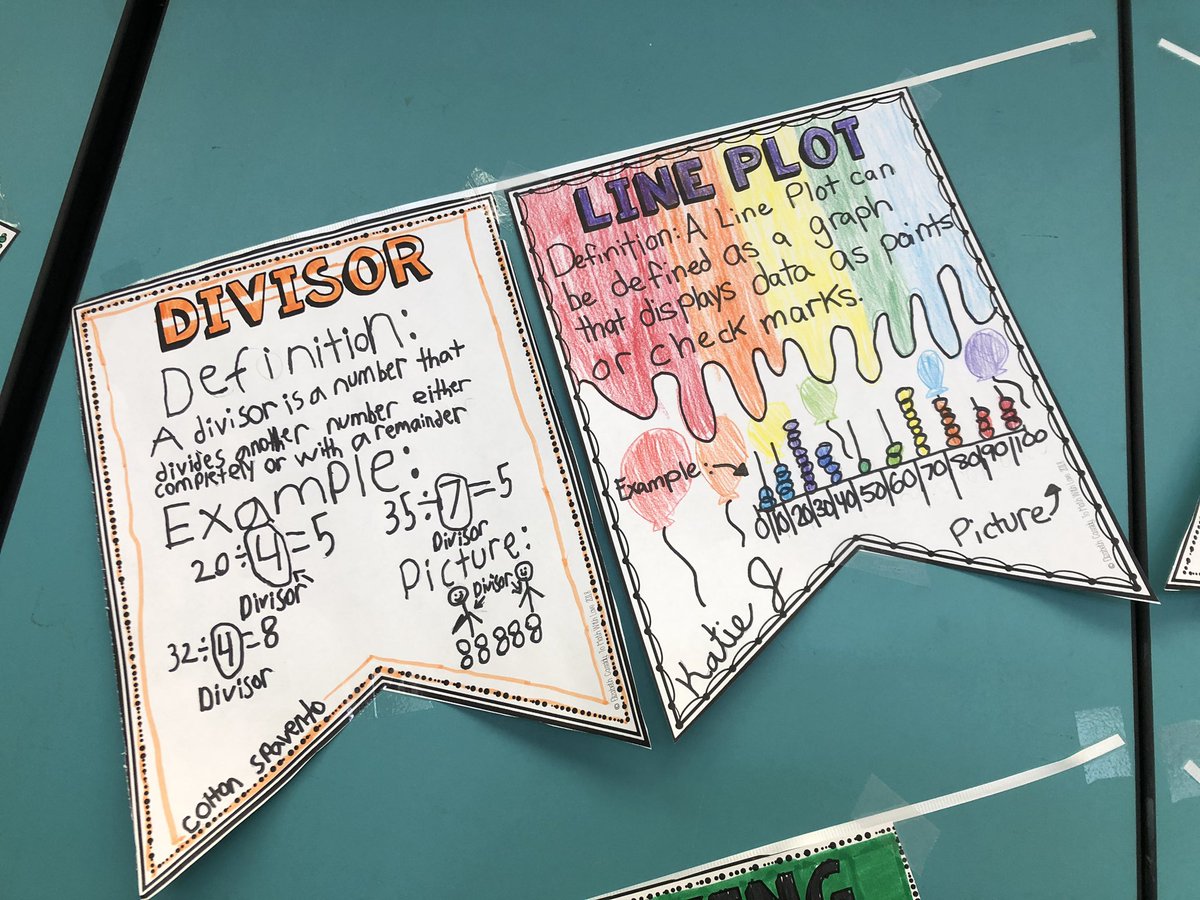 DIVISOR
Definition:
A divisor is a number that
divides another number either
completely or with a remainder
Example:
20÷4=5
Divisor
35÷7=5
Divisor
32÷4=8
Divisor
Picture:
Divisor
88888
colton spavento
LINE PLOT
Definition: A Line Plot can
be defined as a graph
that displays data as points
or check marks.
Example:
0 10 20 30 40 50 60 70 80 90 100
Picture
Katie J
ING